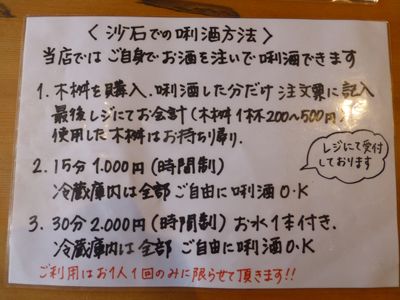 〈沙石での唎酒方法〉
当店では ご自身でお酒を注いで唎酒できます
1. 木桝を購入.唎酒した分だけ 注文票に記入
最後レジにてお会計(木桝1杯200〜500円)
使用した木桝はお持ち帰り.
2. 15分 1.000円(時間制)
冷蔵庫内は全部 ご自由に唎酒O・K
レジにて受付
しております
3. 30分 2.000円(時間制) お水1本付き.
冷蔵庫内は全部 ご自由に唎酒O・K
ご利用はお1人1回のみに限らせて頂きます!!